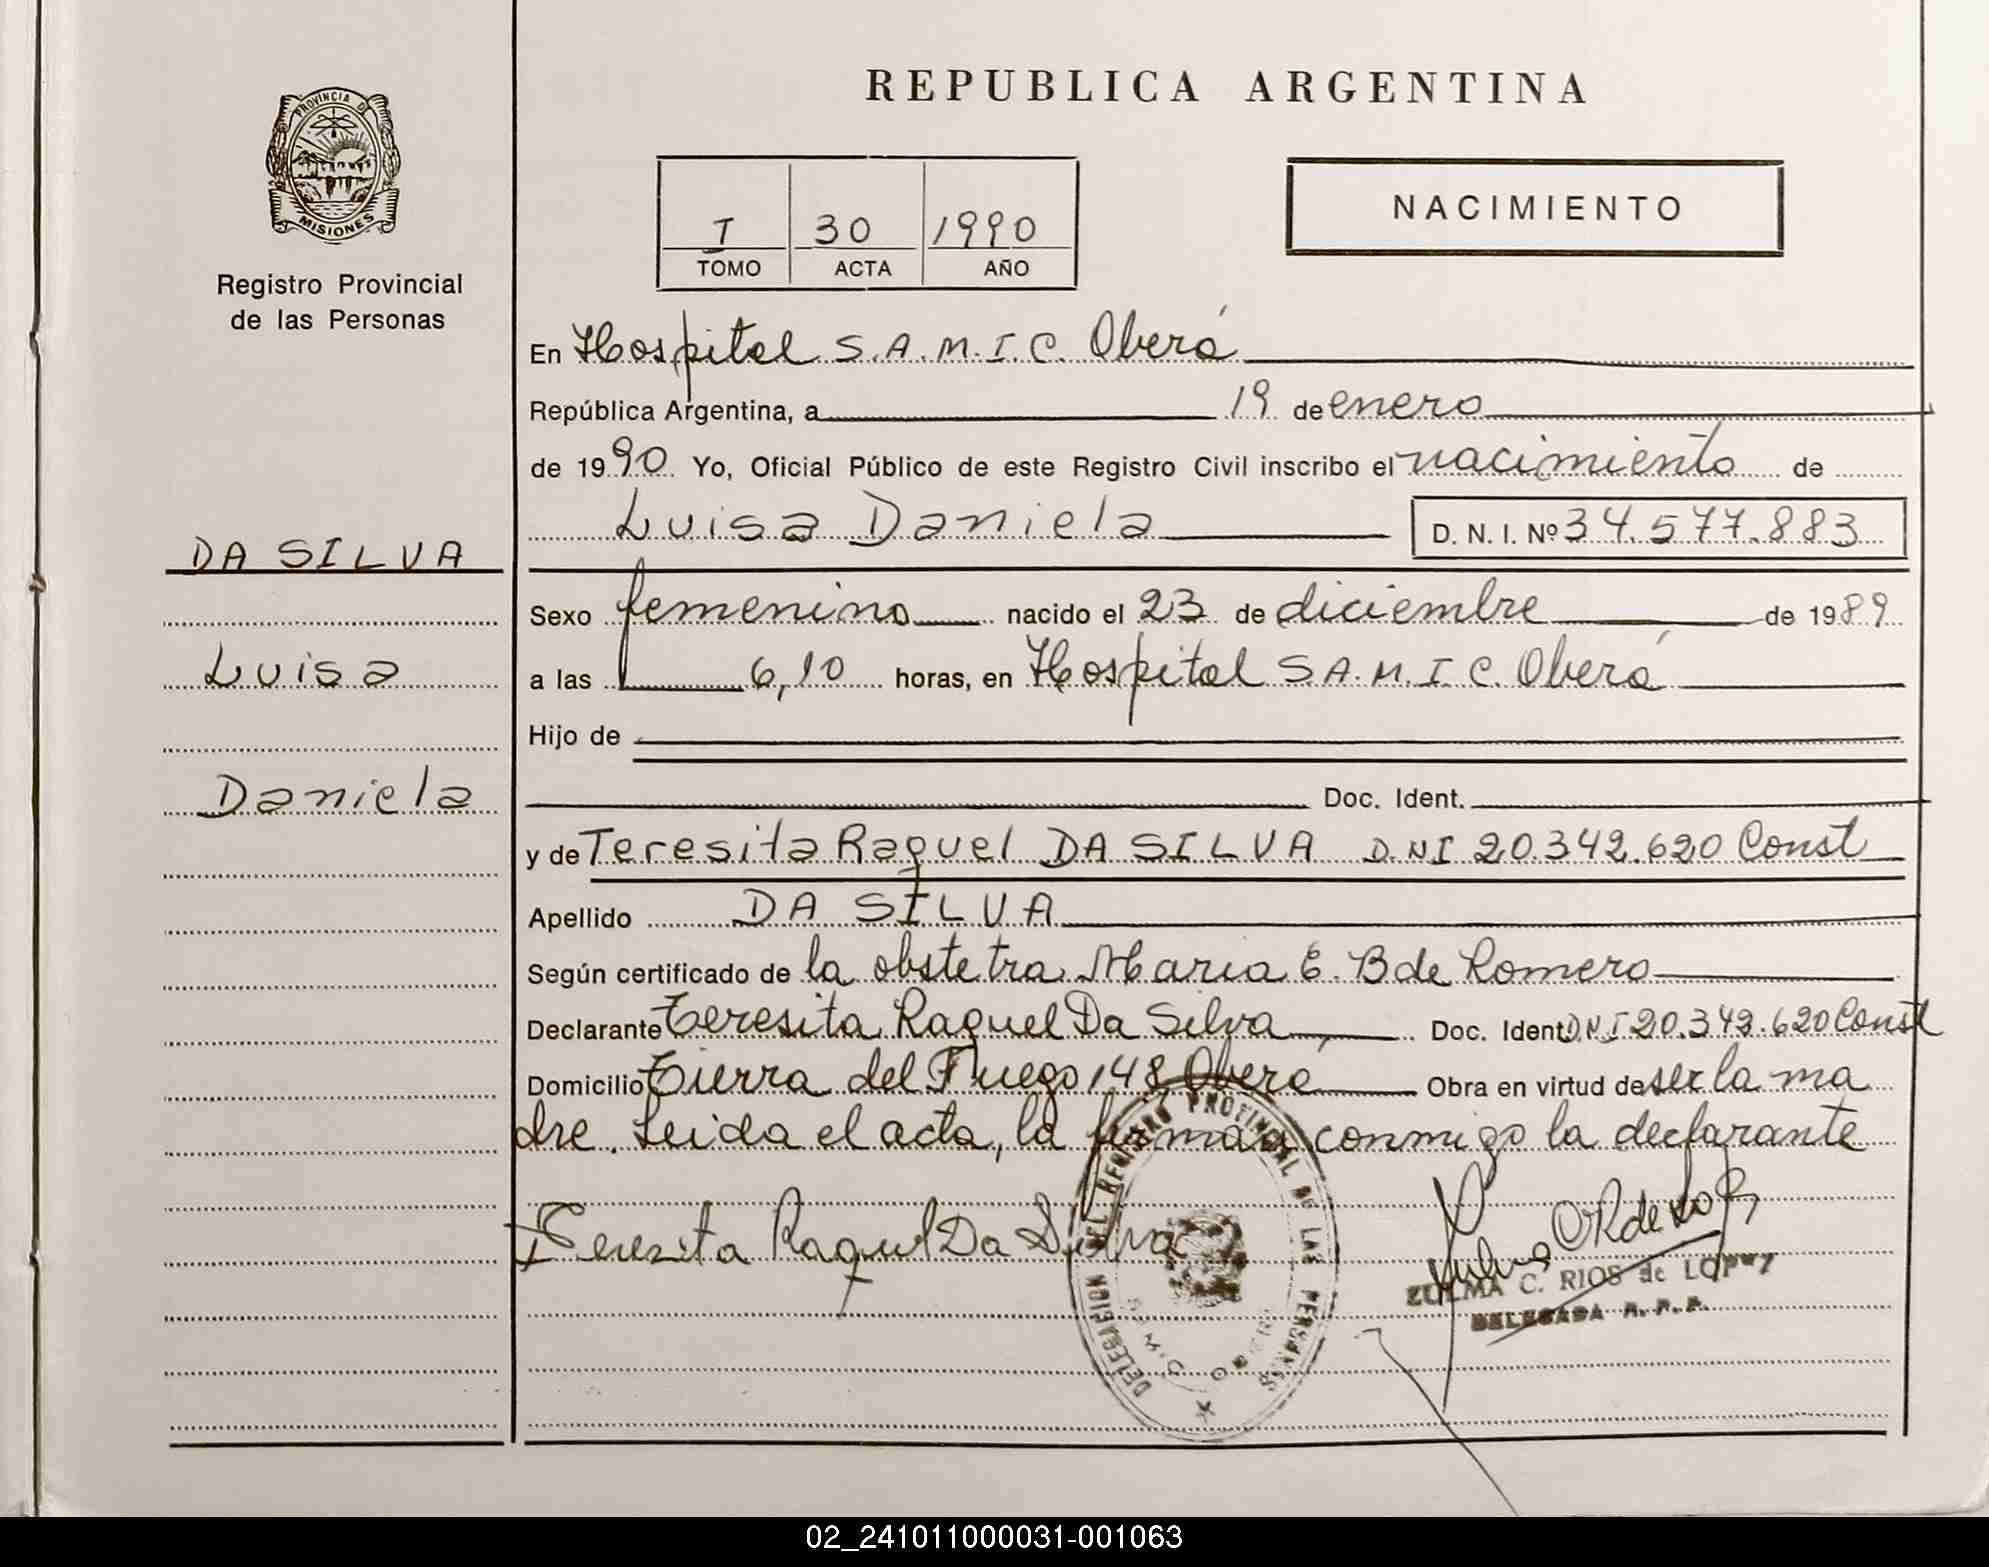 PROVINCIA DE
MISIONES
Registro Provincial
de las Personas
DA SILVA
Luisa
Daniela
REPUBLICA ARGENTINA
I 30 1990
TOMO ACTA AÑO
NACIMIENTO
En Hospital S.A.M.I.C. Oberá
República Argentina, a 19 de enero
de 1990 Yo, Oficial Público de este Registro Civil inscribo el nacimiento de
Luisa Daniela D. N. I. Nº 34.577.883
Sexo femenino nacido el 23 de diciembre de 1989
a las 6,10 horas, en Hospital S.A.M.I.C. Oberá
Hijo de
Doc. Ident.
y de Teresita Raquel DA SILVA D.NI 20.342.620 Const
Apellido DA SILVA
Según certificado de la obstetra Maria E. B de Romero
Declarante Teresita Raquel Da Silva Doc. Ident. DNI 20.342.620 Const
Domicilio Tierra del Fuego 148 Oberá Obra en virtud de ser la ma
dre. Leida el acta, la firma conmigo la declarante
Teresita Raquel Da Silva
DELEGACION DEL REGISTRO PROVINCIAL DE LAS PERSONAS
ZULMA C. RIOS de LOPEZ
DELEGADA R. P. P.
02_241011000031-001063